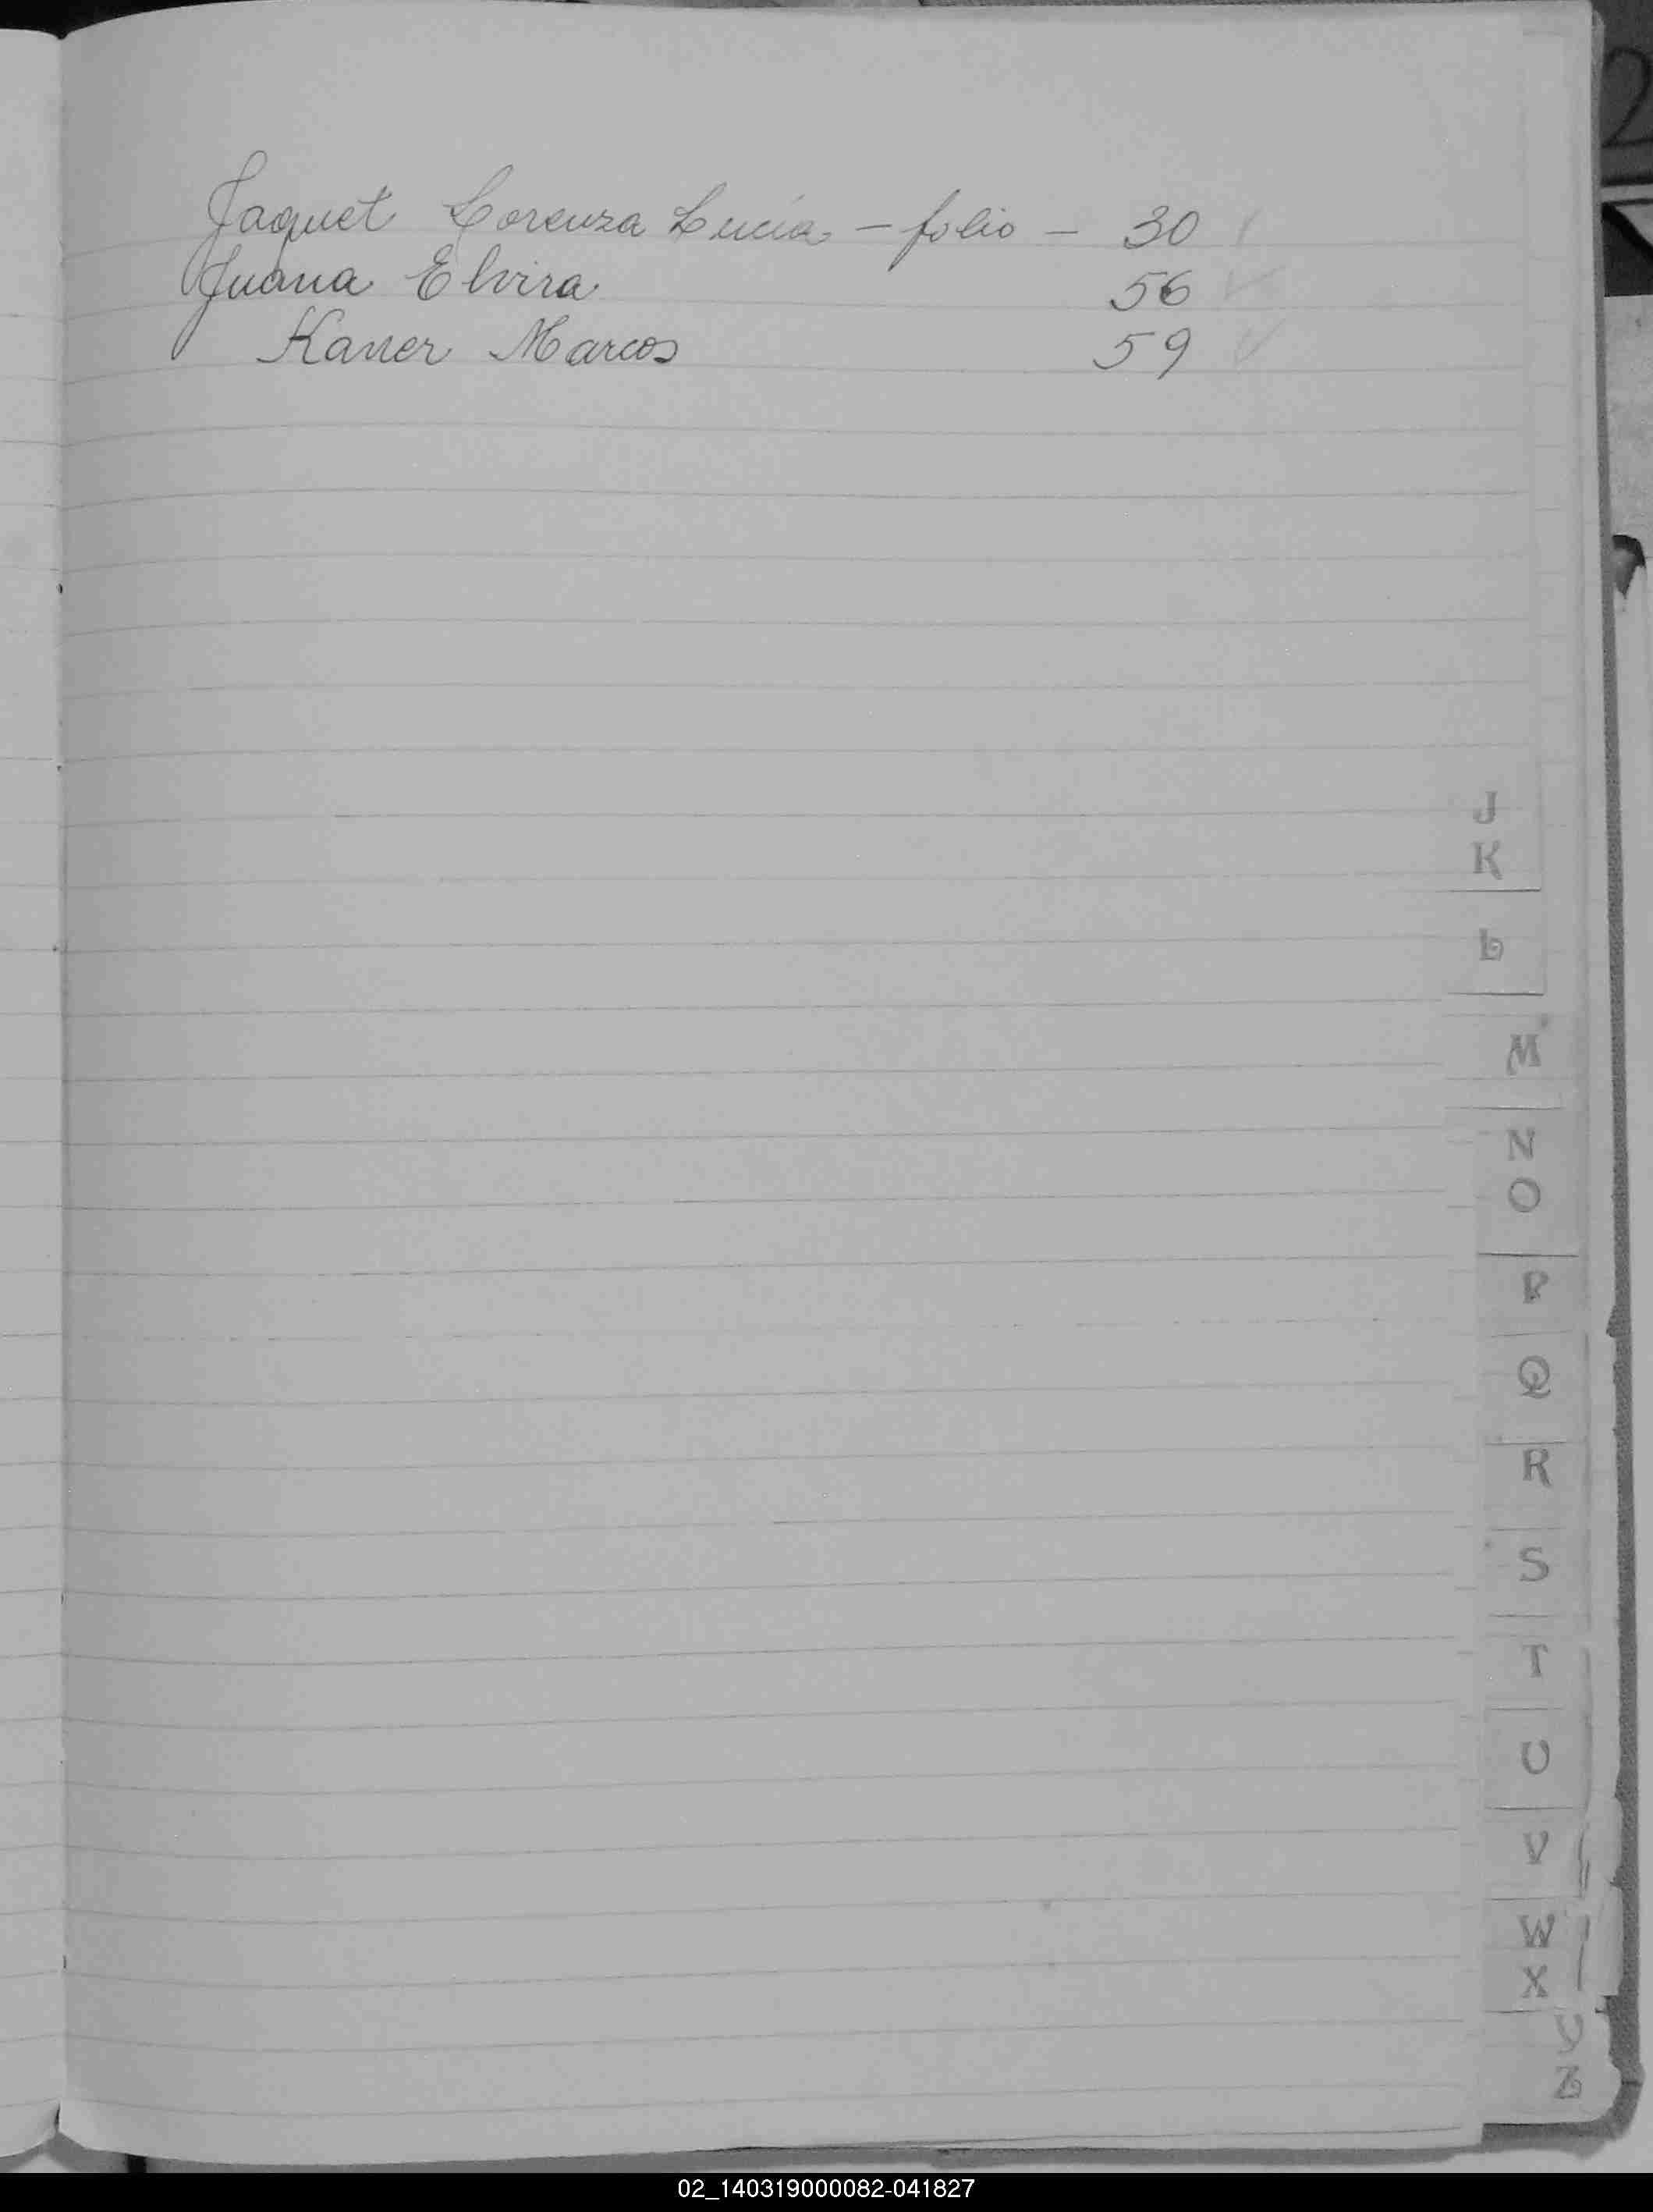 Jaquet Lorenza Lucía - folio - 30
Juana Elvira 56 ✓
Kaner Marcos 59 ✓
J
K
L
M
N
O
P
Q
R
S
T
U
V
W
X
Y
Z
2
02_140319000082-041827